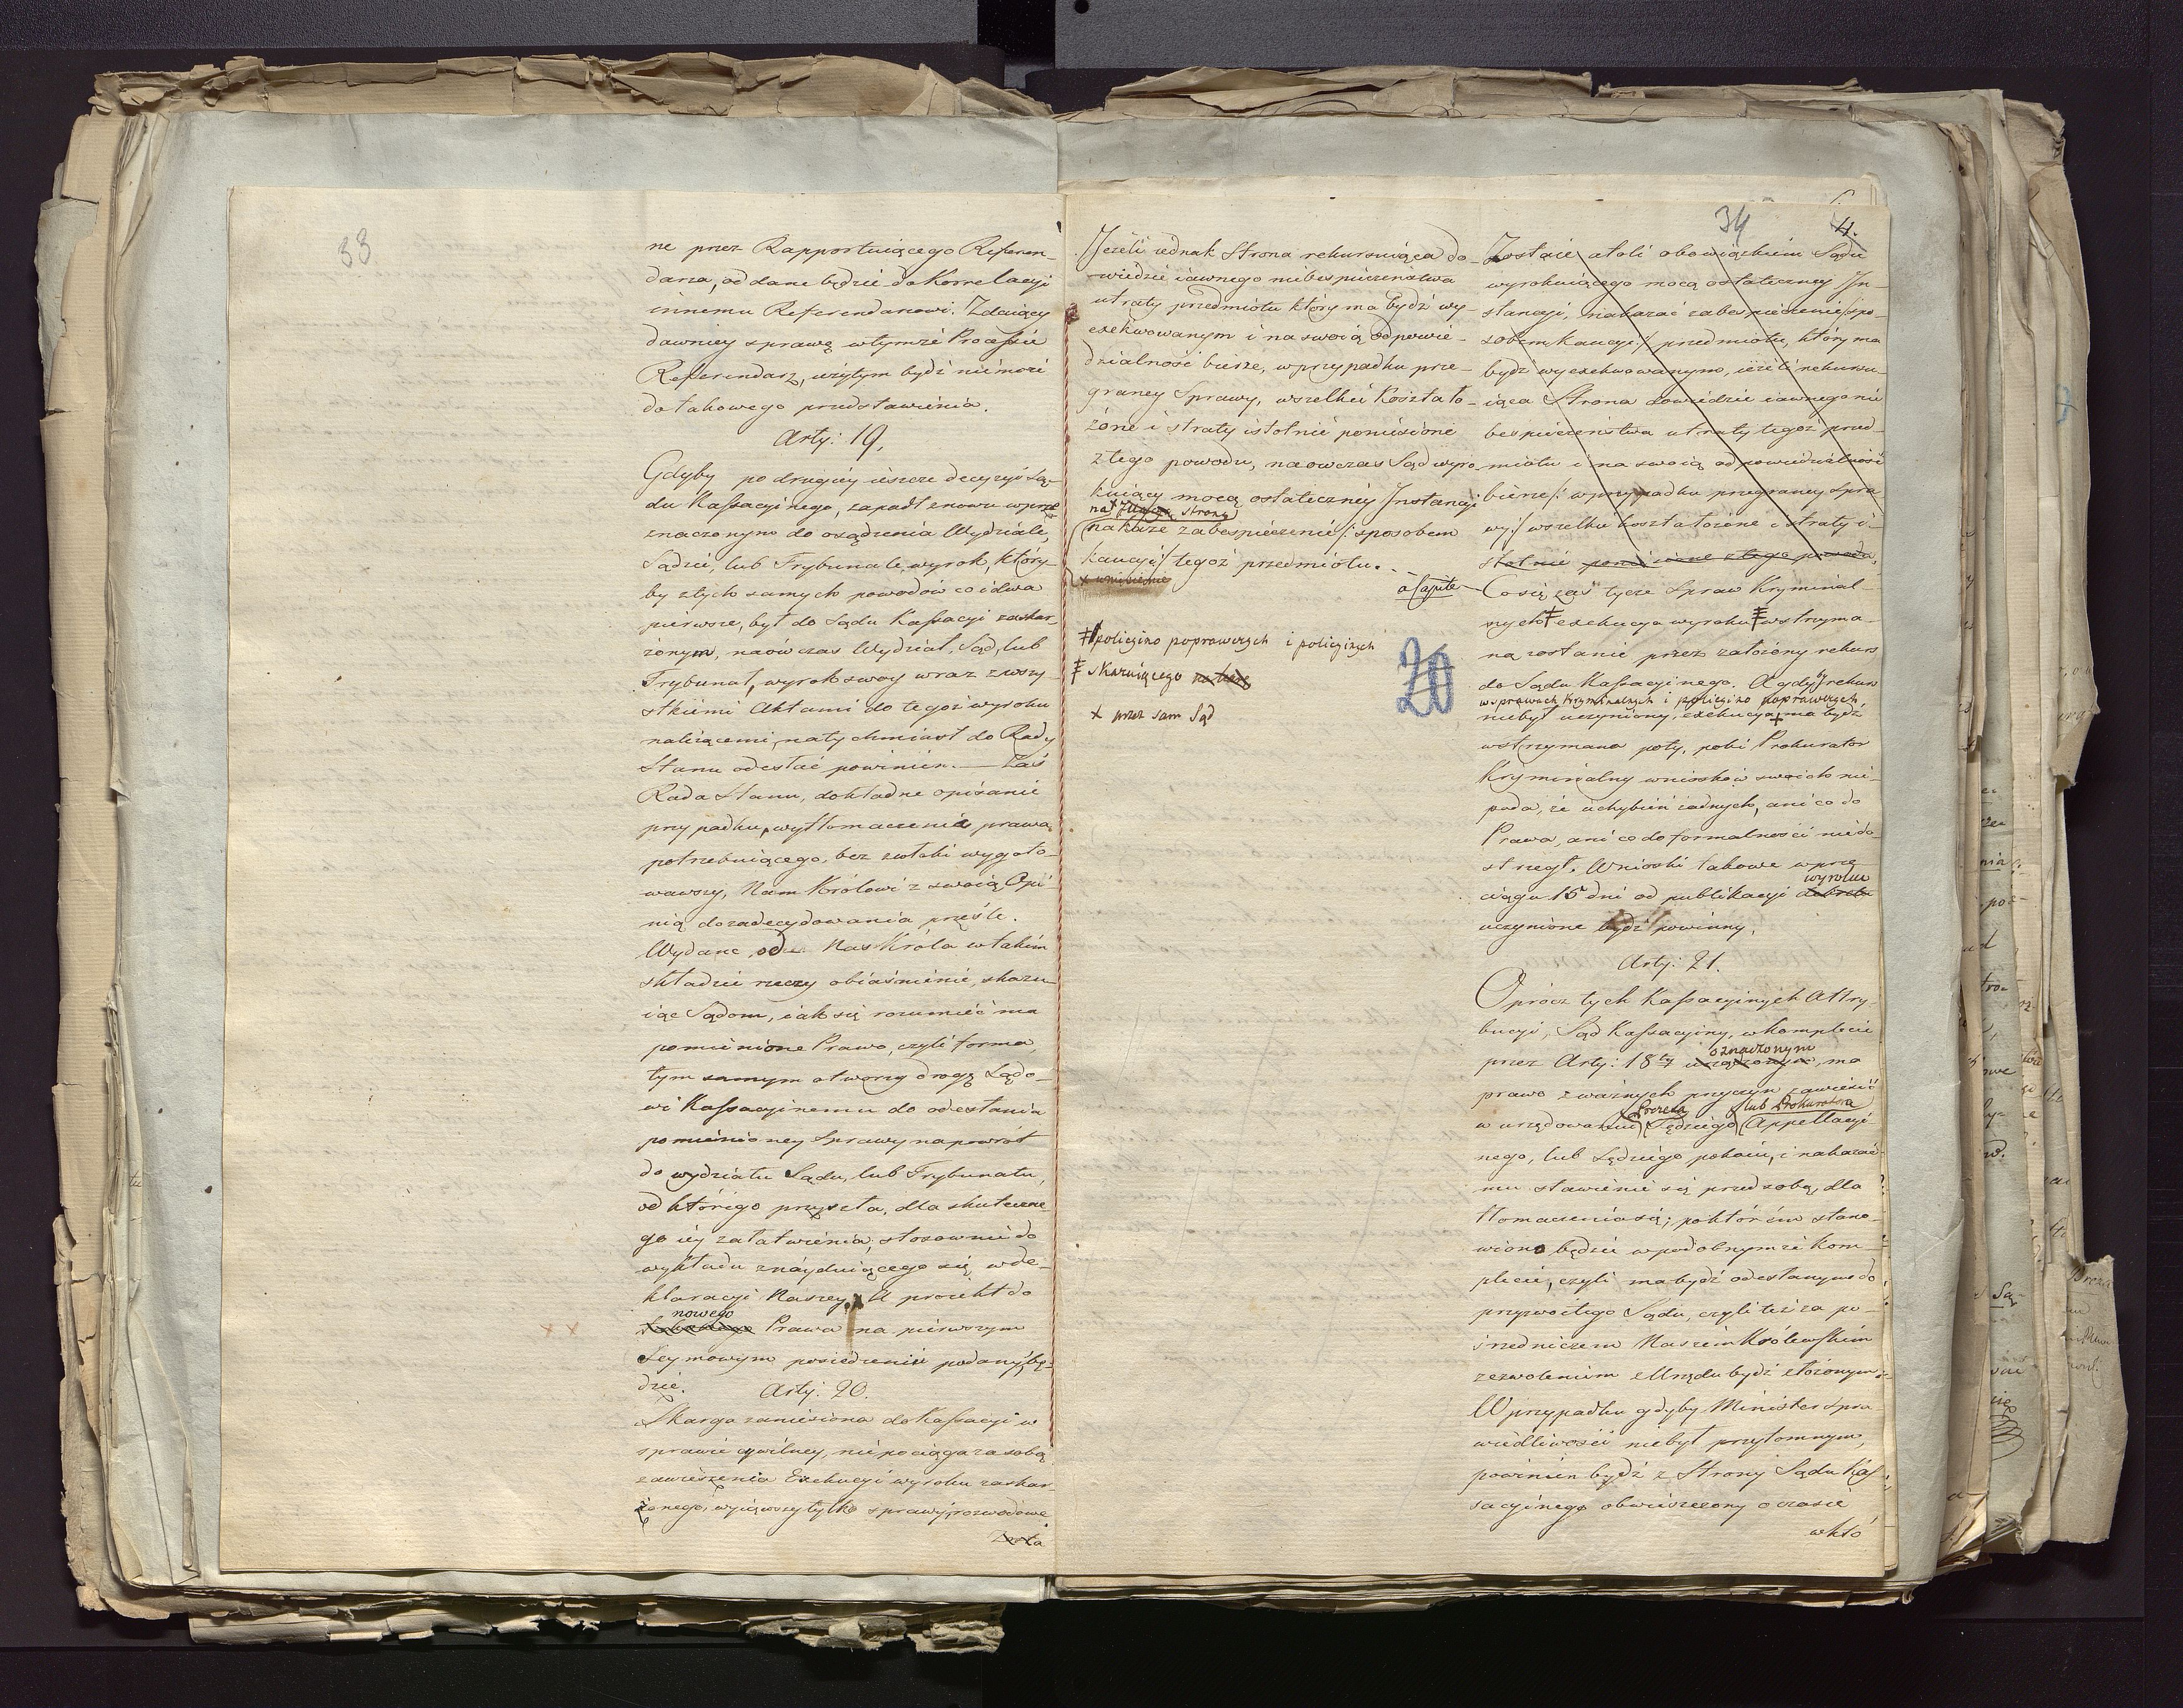 33
ne przez Rapportuiącego Referen-
darza, oddane będzie do Korrelacyi
innemu Referendarzowi. Zdaiący
dawniey sprawę w tymże Processie
Referendarz, użytym bydź niemoże
do takowego przedstawienia.
Arty: 19.
Gdyby po drugiey ieszcze decyzyi Są-
du Kassacyinego, zapadł znowu w prze-
znaczonym do osądzenia Wydziale,
Sądzie, lub Trybunale, wyrok, który-
by z tych samych powodów co i dwa
pierwsze, był do Sądu Kassacyi zaskar-
żonym, naówczas Wydział, Sąd, lub
Trybunał, wyrok swoy wraz z wszy-
stkiemi Aktami do tegoż wyroku
należącemi, natychmiast do Rady
Stanu odesłać powinien. — Zaś
Rada Stanu, dokładne opisanie
przypadku, wytłomaczenia prawa
potrzebuiącego, bez zwłoki wygoto-
wawszy, Nam Królowi z swoią Opi-
nią do zadecydowania prześle.
Wydane od Nas Króla w takim
składzie rzeczy obiaśnienie, skazu-
iąc Sądom, iak się rozumieć ma
pomienione Prawo, czyli forma,
tym samym otworzy drogę Sądo-
wi Kassacyinemu do odesłania
pomienioney Sprawy napowrót
do wydziału Sądu, lub Trybunału,
od którego przyszła, dla skuteczne-
go iey załatwienia, stosownie do
wykładu znayduiącego się w de-
klaracyi Naszey. A proiekt do
nowego
Prawa na pierwszym
Seymowym posiedzeniu podany bę-
dzie. Arty: 20.
Skarga zaniesiona do Kassacyi w
sprawie cywilney, nie pociąga za sobą
zawieszenia Exekucyi wyroku zaskar-
żonego, wyiąwszy tylko sprawy rozwodowe
34
4.
Jeżeli iednak Strona rekursuiąca do-
wiedzie iawnego niebespieczeństwa
utraty przedmiotu który ma bydź wy-
exekwowanym i na swoią odpowie-
dzialność bierze, w przypadku prze-
graney Sprawy, wszelkie Koszta ło-
żone i straty istotnie poniesione
z tego powodu, naówczas Sąd wyro-
kuiący mocą ostateczney Instancyi
na strony
nakaże zabespieczenie /: sposobem
kaucyi :/ tegoż przedmiotu.
policyino poprawczych i policyinych
skazuiącego
x przez sam Sąd
20
Zostaie atoli obowiązkiem Sądu
wyrokuiącego mocą ostateczney In-
stancyi, nakazać zabespieczenie /: spo-
sobem kaucyi :/ przedmiotu, który ma
bydź wyexekwowanym, ieżeli rekursu-
iąca Strona dowiedzie iawnego nie
bespieczeństwa utraty tegoż przed-
miotu i na swoią odpowiedzialność
bierze /: w przypadku przegraney Spra
wy :/ wszelkie koszta łożone i straty i-
stotnie poniesione z tego powodu.
a Capite
Co się zaś tycze Spraw Kryminal-
nych exekucya wyroku wstrzyma-
ną zostanie przez założony rekurs
do Sądu Kassacyinego. A gdyby rekurs
w sprawach kryminalnych i policyino poprawczych,
niebył uczyniony, exekucya + ma bydź
wstrzymana poty, póki Prokurator
Kryminalny wniosków swoich nie
poda, że uchybień żadnych, ani co do
Prawa, ani co do formalności niedo-
strzegł. Wnioski takowe w prze
wyroku
ciągu 15 dni od publikacyi dekretu
uczynione bydź powinny.
Arty: 21.
Oprócz tych Kassacyinych Attry-
bucyi, Sąd Kassacyiny, w komplecie
oznaczonym
przez Arty: 18ty urządzonym, ma
prawo z ważnych przyczyn zawiesić
Prezesa lub Prokuratora
w urzędowaniu Sędziego Appellacyi-
nego, lub Sędziego pokoiu, i nakazać
mu stawienie się przed sobą, dla
tłomaczenia się; po którém stano-
wiono będzie w podobnymże kom-
plecie, czyli ma bydź odesłanym do
przyzwoitego Sądu, czyli też za po-
średniczem Naszém Królewskim
zezwoleniem z Urzędu bydź złożonym.
W przypadku gdyby Minister Spra-
wiedliwości niebył przytomnym,
powinien bydź z Strony Sądu Kas-
sacyinego obwieszczony o czasie
w któ